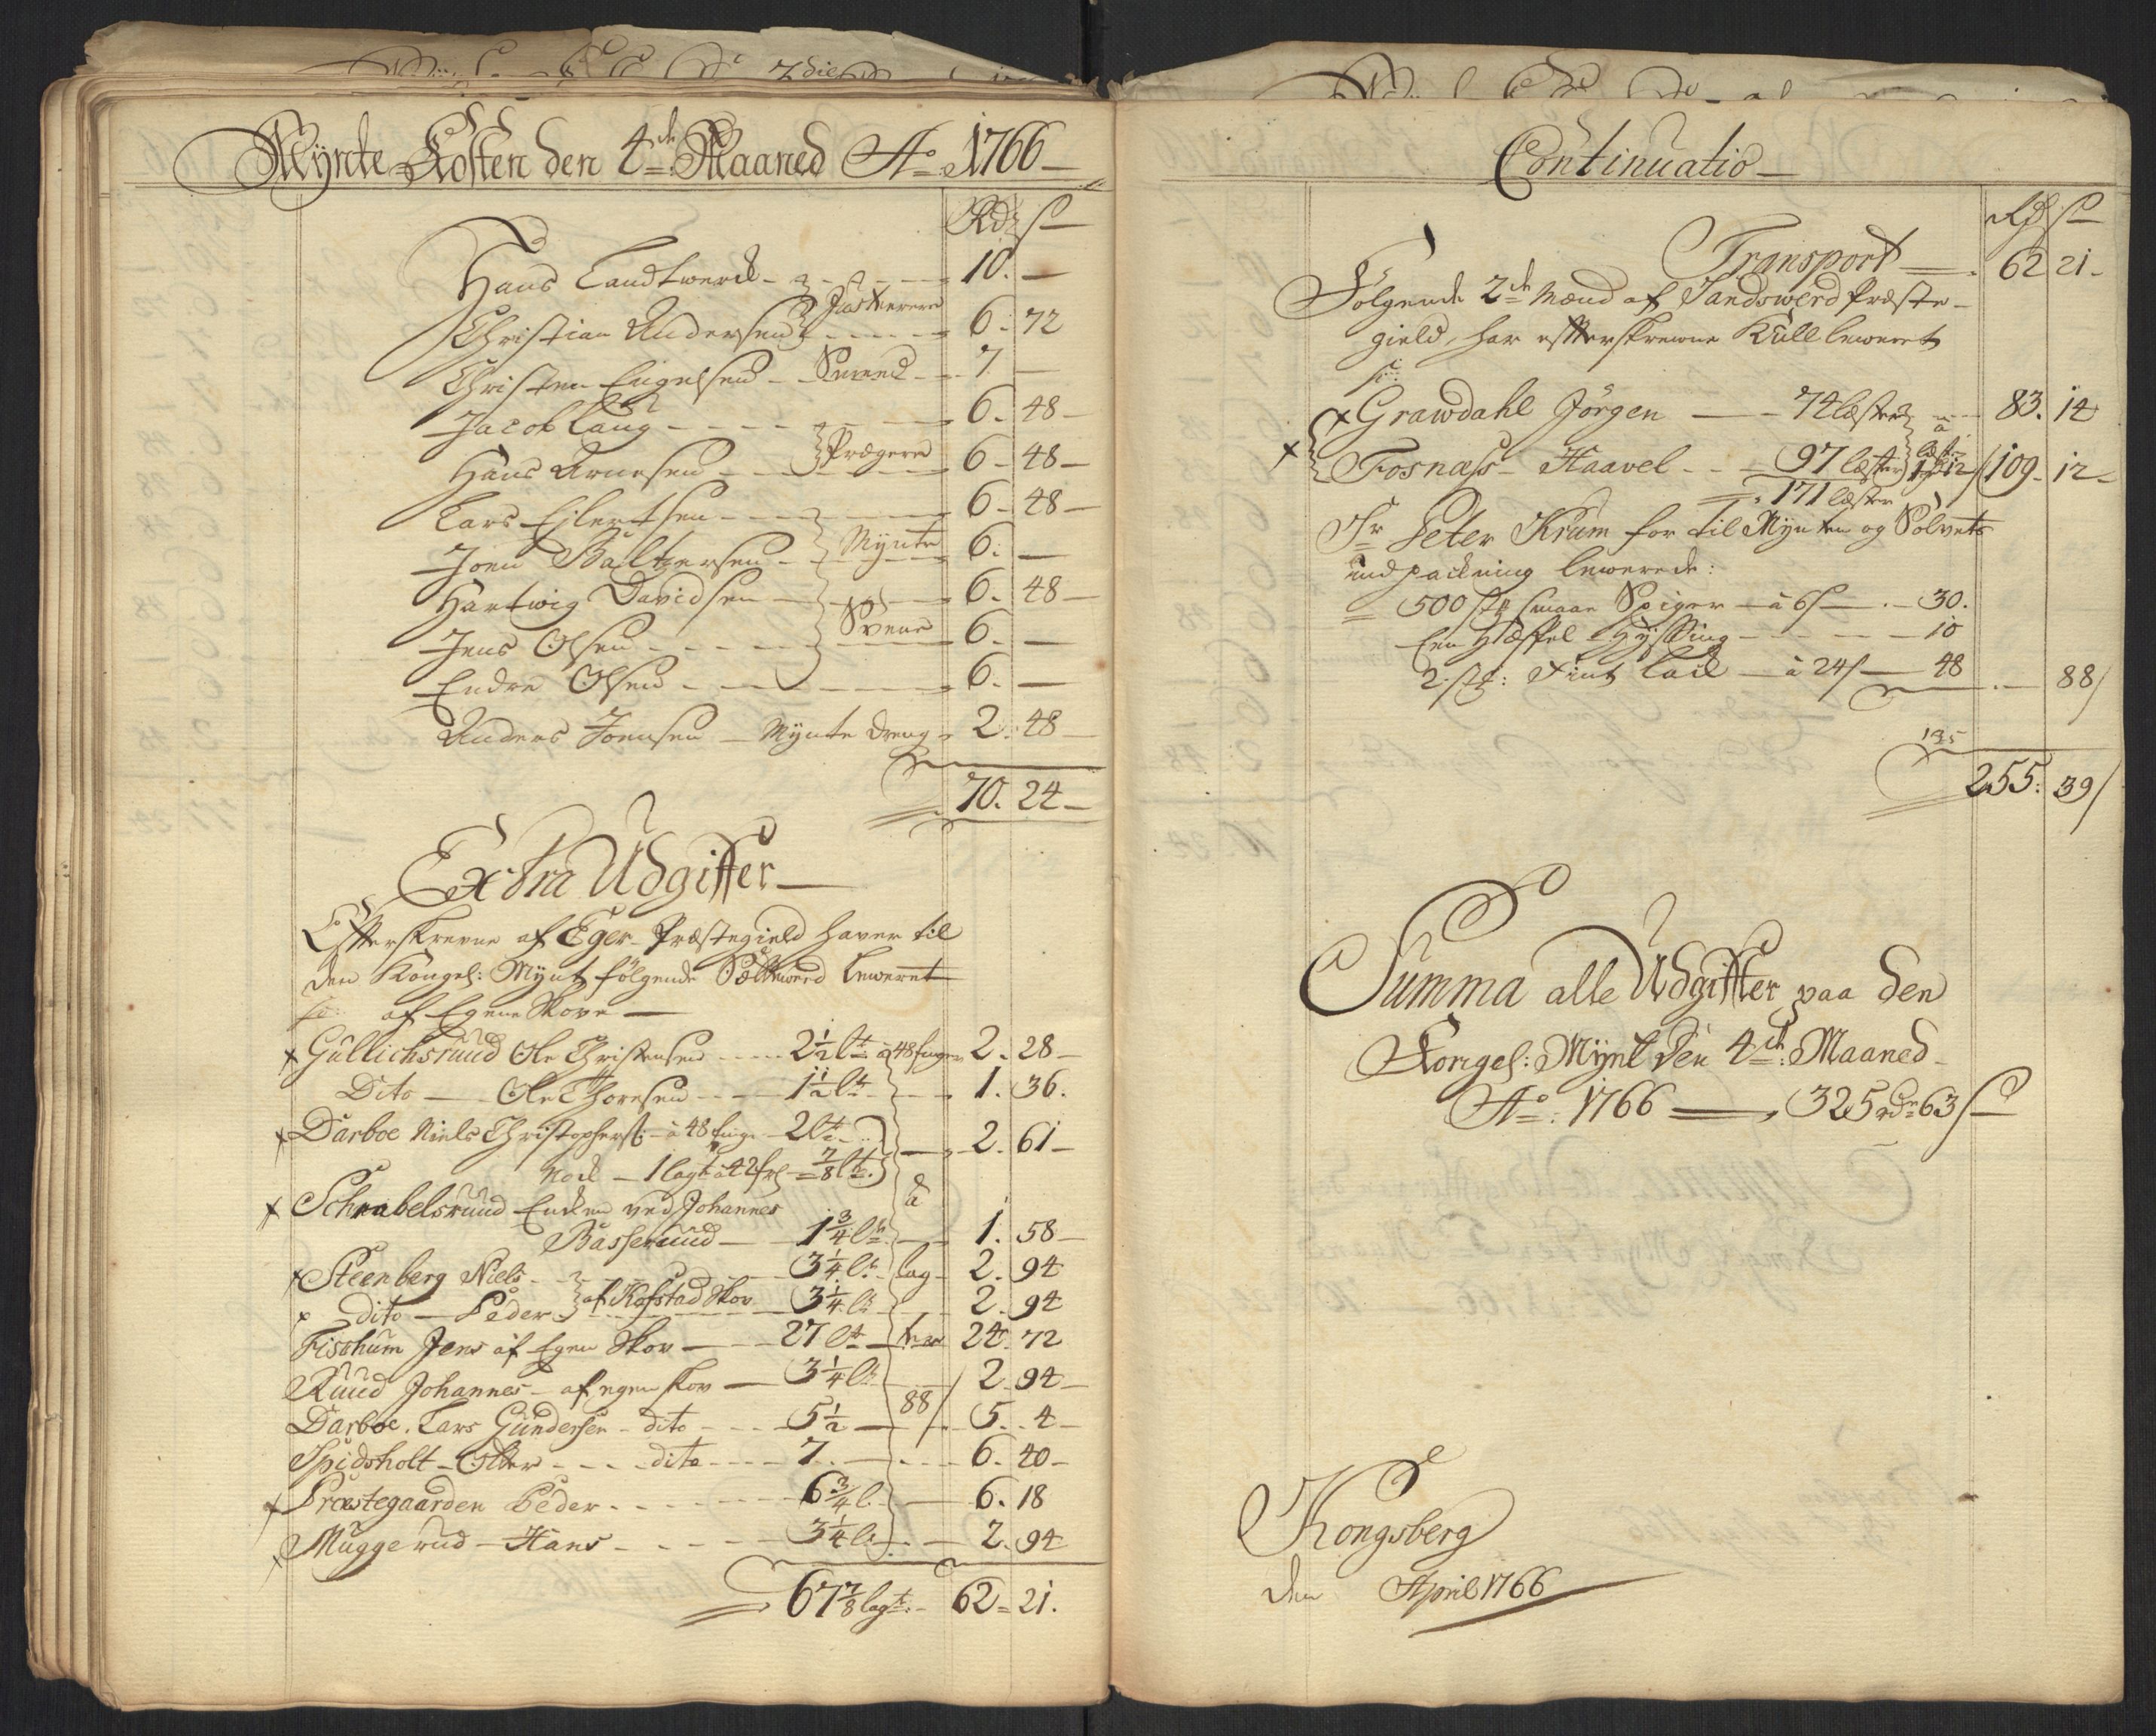 Mÿnte Kosten den 4de Maaned Ao 1766
Rdr s
Hans Landtwerck 10. —
Christian Andersen Justerere 6. 72
Christen Engelsen Smed 7 —
Jacob Lang 6. 48
Hans Arnesen Prægere 6 48
Lars Eilertsen 6 48
Joen Baltzersen Mÿnte 6. —
Hartwig Davidsen 6. 48
Jens Olsen Svene 6. —
Endre Olsen 6. —
Anders Joensen Mÿnte dreng 2. 48
70. 24
Extra Udgiffter
Effterskrevne af Eger Præstegield haver til
den Kongel: Mÿnt følgende leweret
sc: af Egene Skove
Gullichsruud Ole Christensen 2 1/2 lt à 48 finger 2. 28
Dito Ole Thoresen 1 1/2 lt 1. 36.
Darboe Niels Christophers: à 48 fing: 2 lt
nock 1 lagt à 42 7/8 lt. 2. 61
Schrabelsruud Encken ved Johannes à
Basserüud 1 3/4 lt 1. 58
Steenberg Niels 3 1/4 lt lag 2. 94
dito Peder af Kofstad Skov 3 1/4 lt 2. 94
Fischum Jens af Egen Skov 27 lt ter 24. 72
Ruud Johannes af egen skov 3 1/4 lt 2. 94
Darboe Lars Gundersen dito 5 1/2 88 s 5. 4
Spidsholt Otter dito 7 6. 40
Præstegaarden Peder 6 3/4 l 6. 18
Muggerud Hans 3 1/4 l 2. 94
67 7/8 lagt. 62 21.
Continuatio
Rdr s
Transport 62 21
Følgende 2de Mænd af Sandswerd Præste-
gield, har effterskrewne Kull leweret
sc:
Grawdahl Jörgen 74 læster 83. 14
à
Fosnæss Haavel 97 læster 109. 12
171 læster
Sr Peter Kram for til Mynten og Sølvets
indpackning lewerede:
500 stk smaae Spiger à 6 s 30.
Een Hÿssing 10
2 stk: Fint à 24 s 48 88 s
135
255. 39 s
Summa alle Udgiffter paa den
Kongel: Mÿnt den 4de Maaned
Ao: 1766 325 rdr 63 s
Kongsberg
den April 1766